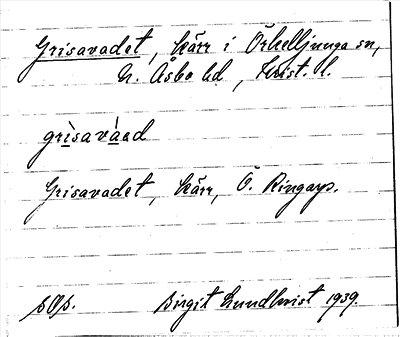 Grisavadet, kärr i Örkelljunga sn,
N. Åsbo hd, Krist. l.
grìsavàad
Grisavadet, kärr, Ö. Ringarp.
Birgit Lundkvist 1939.